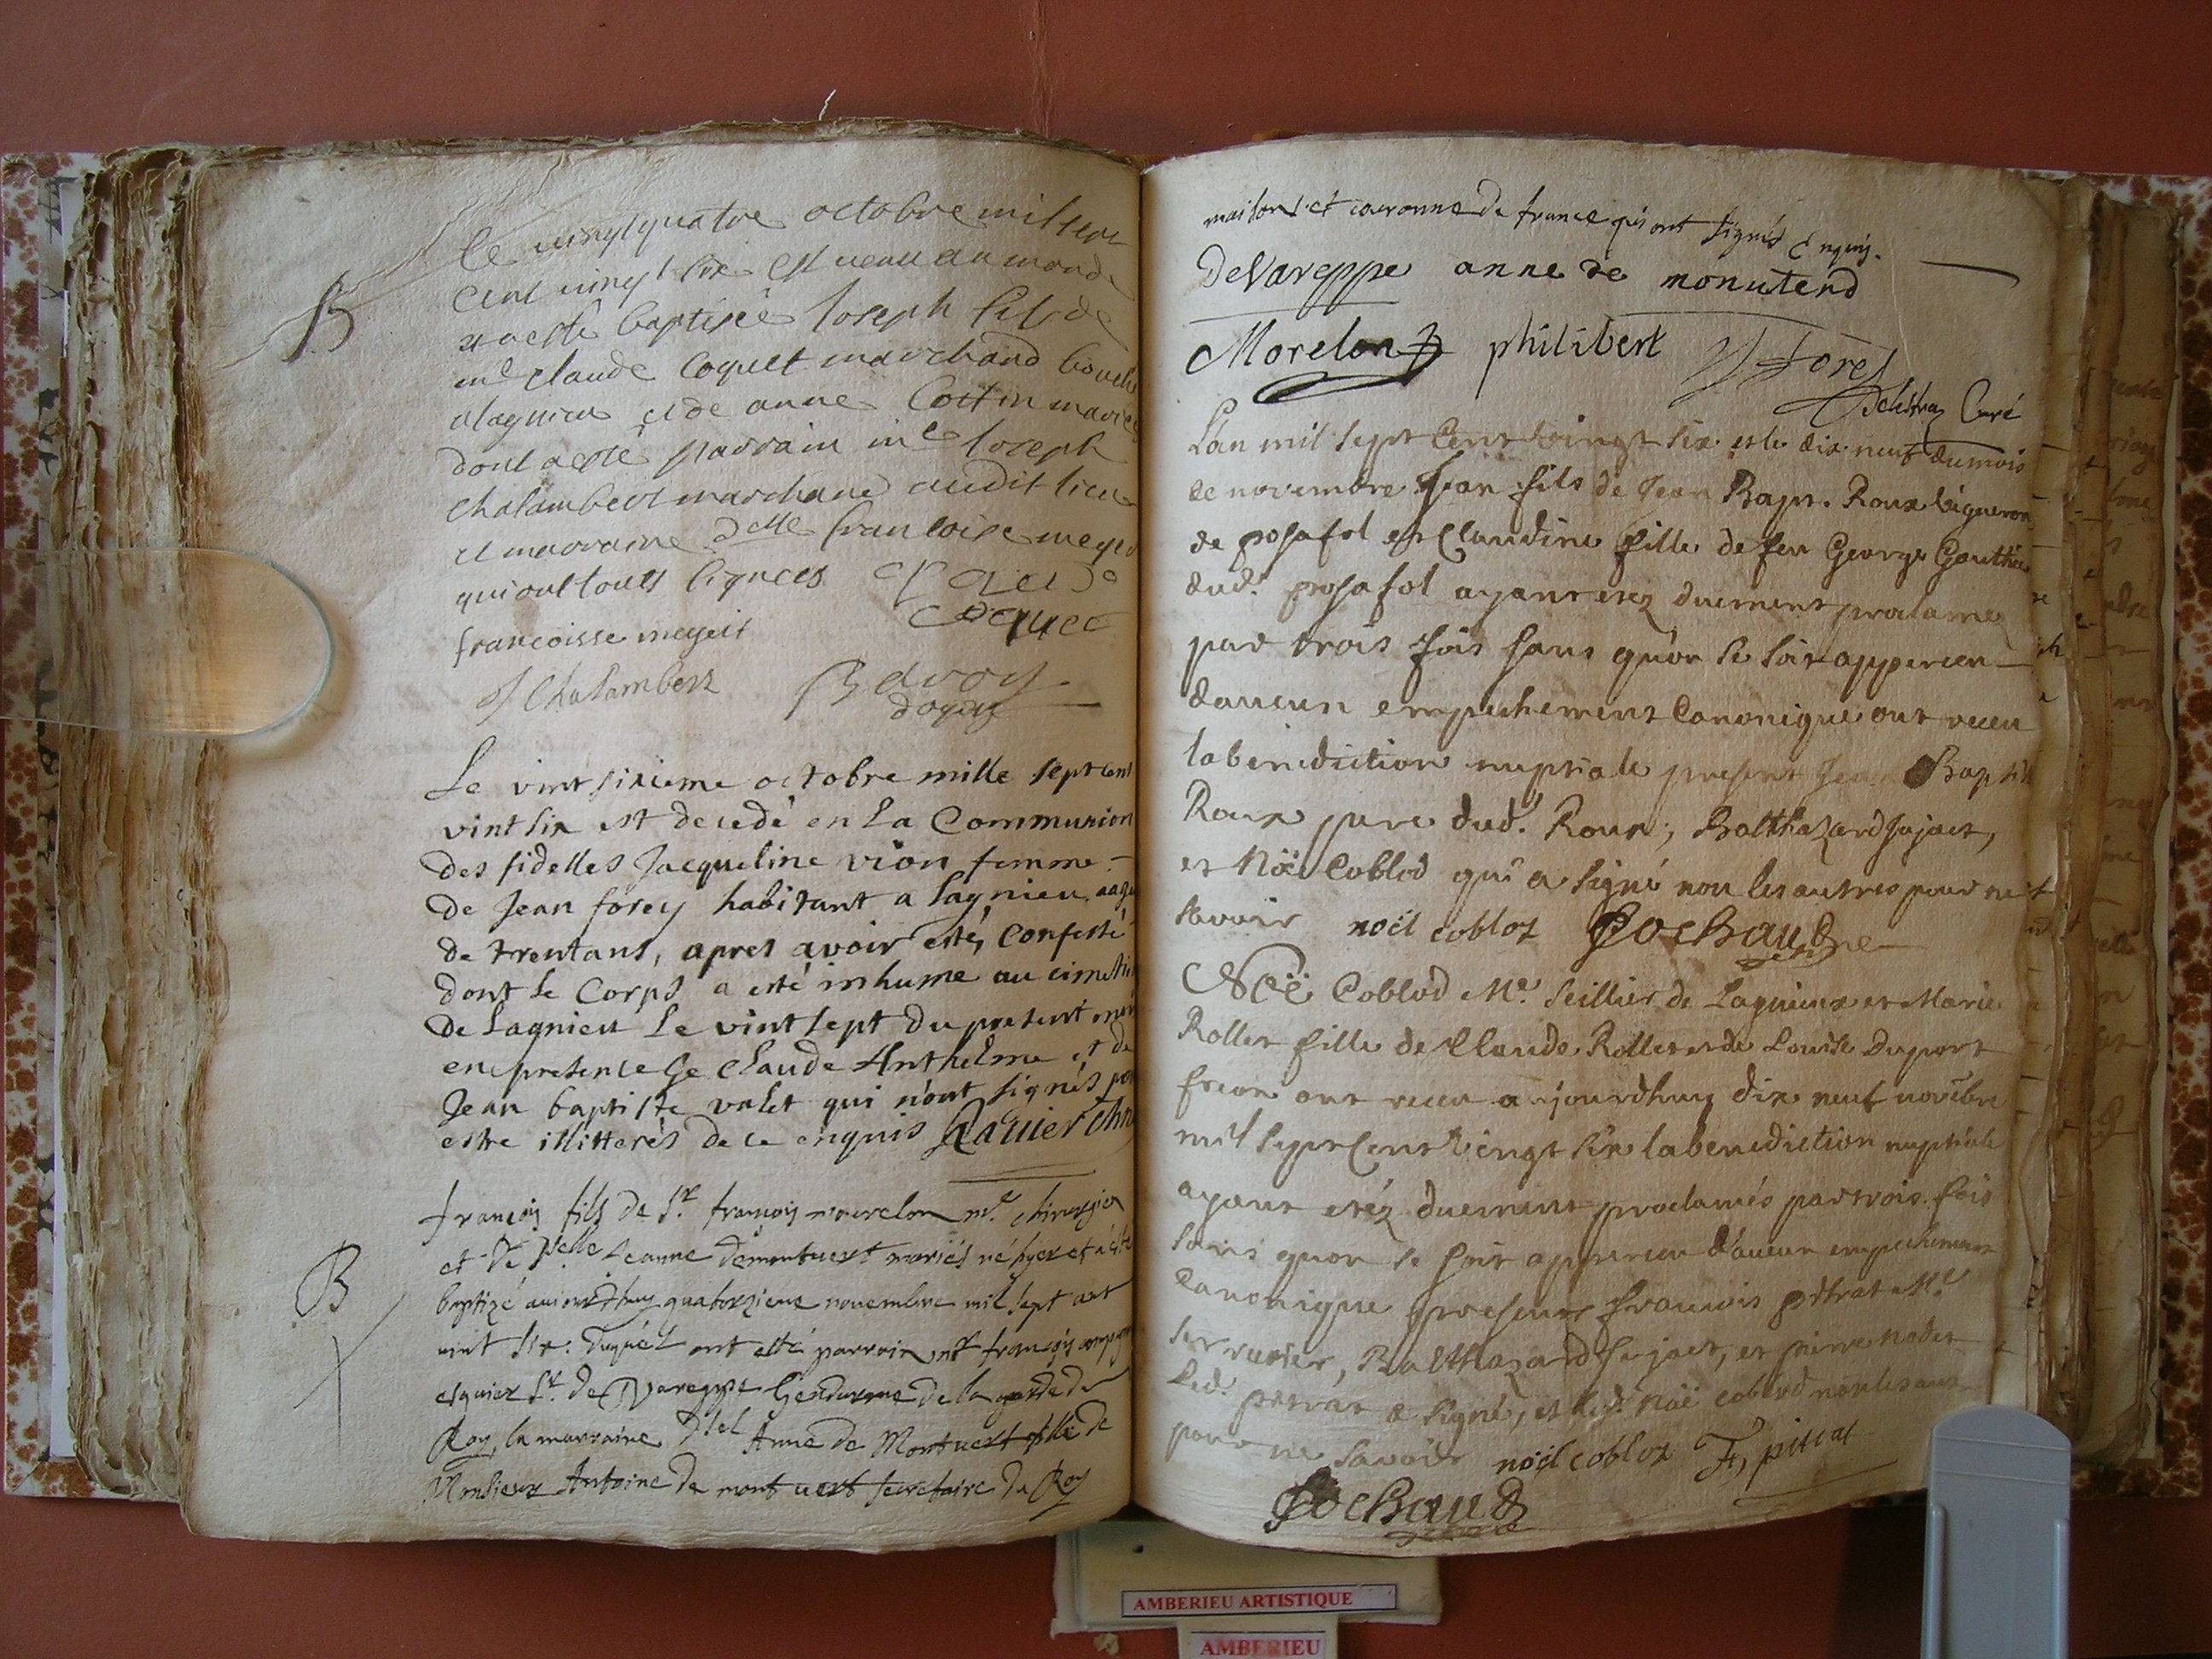 B
le vingt quatre octobre mil sept
cent vingt six est venu au monde
et a esté baptisée Joseph fils de
me claude Coquet marchand
a lagnieu et de anne Cottin mariés
dont a esté parrain me Joseph
Chalambert marchand audit lieu
et marraine delle francoise meget
qui ont touts signees
francoisse megeit Coquet
J Chalambert
doyen
Le vint sixieme octobre mille sept cent
vint six est decedé en La Communion
des fidelles Jacqueline vion femme
de Jean forey habitant a lagnieu
de trentans, apres avoir esté, Confessé
dont le Corps a esté inhume au
de Lagnieu Le vint sept du present
en presence De Claude Anthelme et de
Jean baptiste valet qui n'ont signés
estre illitterés de ce enquis
B
françois fils de Sr. françois morelon mr. chirurgien
et de Delle Jeanne demontuert mariés né hyer et a esté
baptizé aujourdhuy quatorzieme novembre mil sept cent
vint six: Duquel ont esté parrain françois
esquier Sr. de Vareppe Gendarme de la garde du
Roy, la marraine Delle Anne de Montuert fille de
Monsieur Antoine de montuert secretaire du Roy
maison et couronne de france qui ont signés Enquis.
DeVareppe anne de monutend
Morelon philibert J Forel
Curé
L'an mil sept Cent vingt six et le dix neuf du mois
de novembre Jean fils de Jean Bapt. Roux vigneron
de posafol et Claudine fille de feu George Gouthier
dud. posafol ayant etez duement proclamez
par trois fois sans qu'on se soit apperceu
daucun empechement Canonique ont receu
la benediction nuptiale present Jean Baptiste
Roux pere dud. Roux, Balthazard Jujat,
et Noë Coblod qui a signé non les autres pour ne
savoir noël cobloz Cochaud
Noë Coblod Me. Seillier de Lagnieux et Marie
Rollet fille de Claude Rollet et de Louïse Duport
ont receu aujourdhuy dix neuf novēbre
mil sept Cent vingt six la benediction nuptiale
ayant etéz duement proclamés par trois fois
sans quon se soit apperceu d'aucun empechement
Canonique presents francois pétrat Me.
serrurier, Balthazard Jujat, et pierre
Led. petrat a signé, et led. Noë coblod non les
pour ne savoir noël coblox F, pittat
Cochaud
AMBERIEU ARTISTIQUE
AMBERIEU